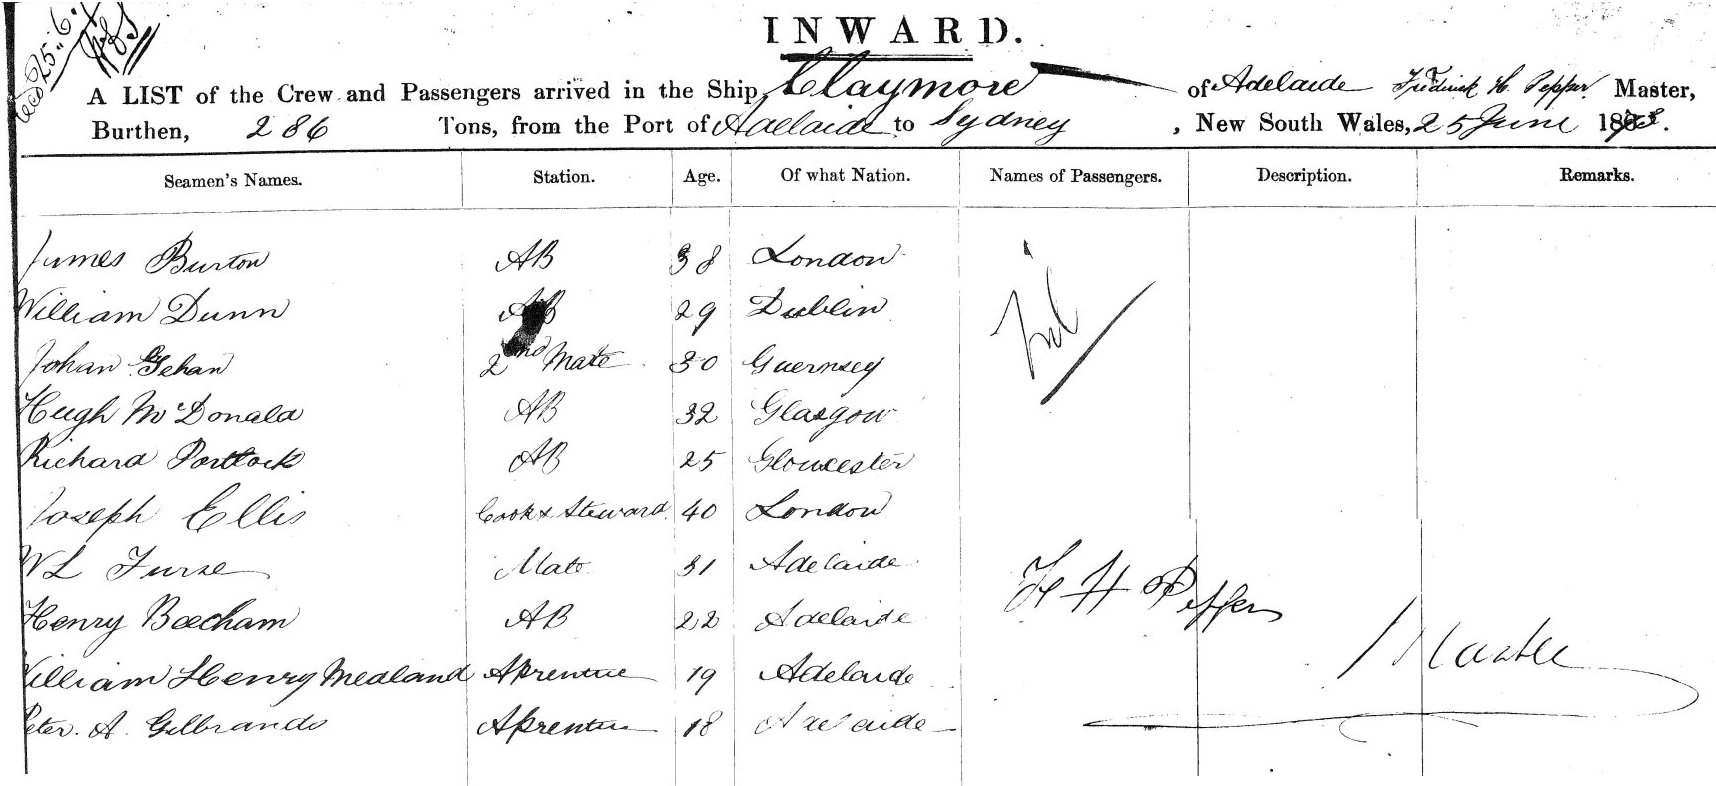 Recd 25.6.
INWARD.
A LIST of the Crew and Passengers arrived in the Ship Claymore of Adelaide Fredrick H Pepper Master,
Burthen, 286 Tons, from the Port of Adelaide to Sydney, New South Wales, 25 June 1873.
Seamen's Names. Station. Age. Of what Nation. Names of Passengers. Description. Remarks.
James Burton AB 38 London
William Dunn AB 29 Dublin
Nil
Johan Gehan 2nd Mate 30 Guernsey
Hugh McDonald AB 32 Glasgow
Richard Portlock AB 25 Gloucester
Joseph Ellis Cook & Steward 40 London
W L Furse Mate 31 Adelaide
F H Pepper
Henry Beecham AB 22 Adelaide
Master
William Henry Medland Aprentice 19 Adelaide
Peter. A. Gilbrands Aprentice 18 Adelaide